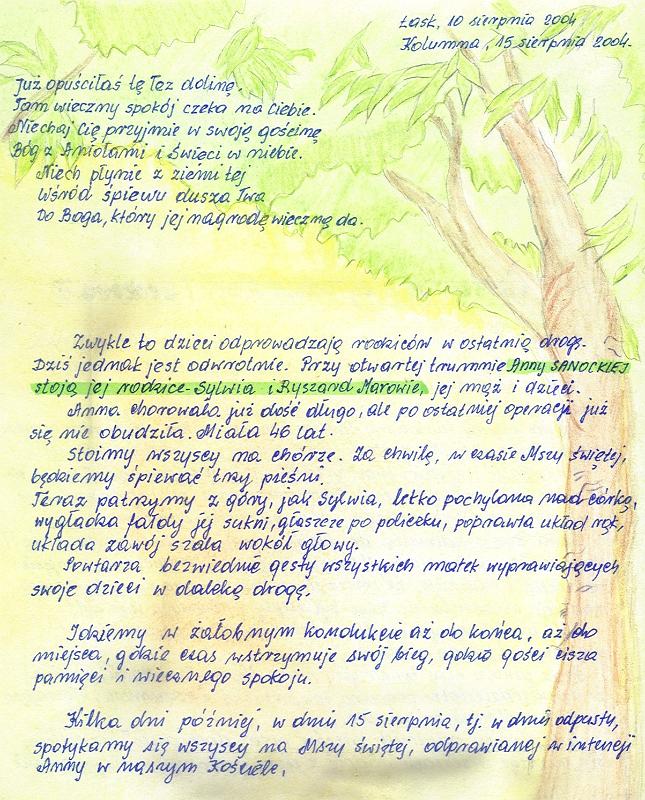 Łask, 10 sierpnia 2004
Kolumna, 15 sierpnia 2004.
Już opuściłaś tę łez dolinę,
Tam wieczny spokój czeka na Ciebie.
Niechaj Cię przyjmie w swoją gościnę
Bóg z Aniołami i święci w niebie.
Niech płynie z ziemi tej
Wśród śpiewu dusza Twa
Do Boga, który jej nagrodę wieczną da.
Zwykle to dzieci odprowadzają rodziców w ostatnią drogę.
Dziś jednak jest odwrotnie. Przy otwartej trumnie Anny SANOCKIEJ
stoją jej rodzice - Sylwia i Ryszard Marowie, jej mąż i dzieci.
Anna chorowała już dość długo, ale po ostatniej operacji już
się nie obudziła. Miała 46 lat.
Stoimy wszyscy na chórze. Za chwilę, w czasie Mszy świętej,
będziemy śpiewać trzy pieśni.
Teraz patrzymy z góry, jak Sylwia, lekko pochylona nad córką,
wygładza fałdy jej sukni, głaszcze po policzku, poprawia układ rąk,
układa zawój szala wokół głowy.
Powtarza bezwiednie gesty wszystkich matek wyprawiających
swoje dzieci w daleką drogę.
Idziemy w żałobnym kondukcie aż do końca, aż do
miejsca, gdzie czas wstrzymuje swój bieg, gdzie gości cisza
pamięci i wiecznego spokoju.
Kilka dni później, w dniu 15 sierpnia, tj. w dniu odpustu,
spotykamy się wszyscy na Mszy świętej, odprawianej w intencji
Anny w naszym Kościele.